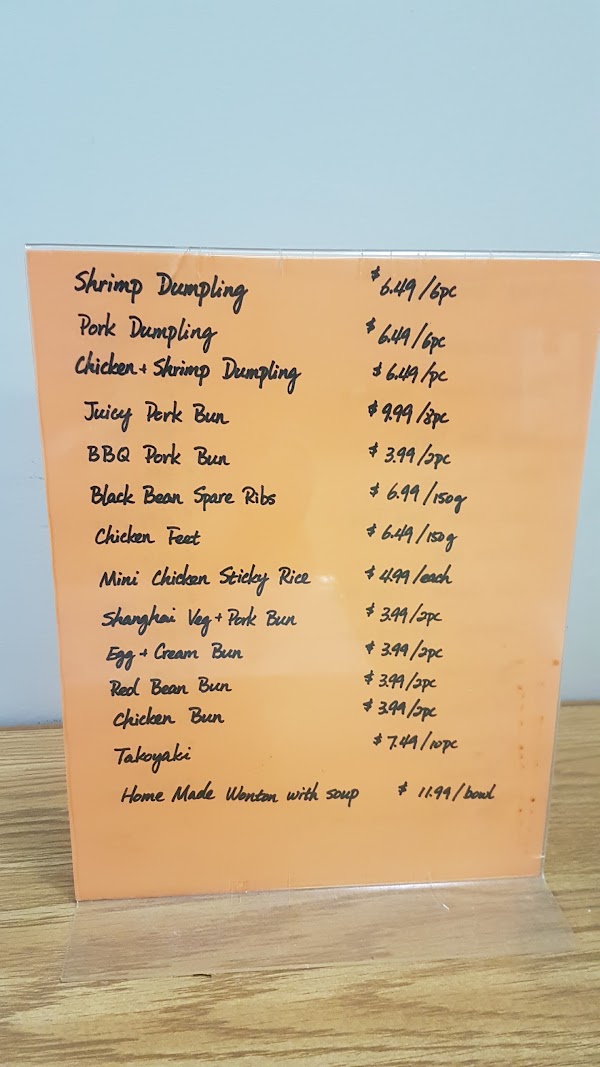 Shrimp Dumpling $6.49/6pc
Pork Dumpling $6.49/6pc
Chicken + Shrimp Dumpling $6.49/pc
Juicy Pork Bun $9.99/8pc
BBQ Pork Bun $3.99/2pc
Black Bean Spare Ribs $6.99/150g
Chicken Feet $6.49/150g
Mini Chicken Sticky Rice $4.99/each
Shanghai Veg + Pork Bun $3.99/2pc
Egg + Cream Bun $3.99/2pc
Red Bean Bun $3.99/2pc
Chicken Bun $3.99/2pc
Takoyaki $7.49/10pc
Home Made Wonton with soup $11.99/bowl